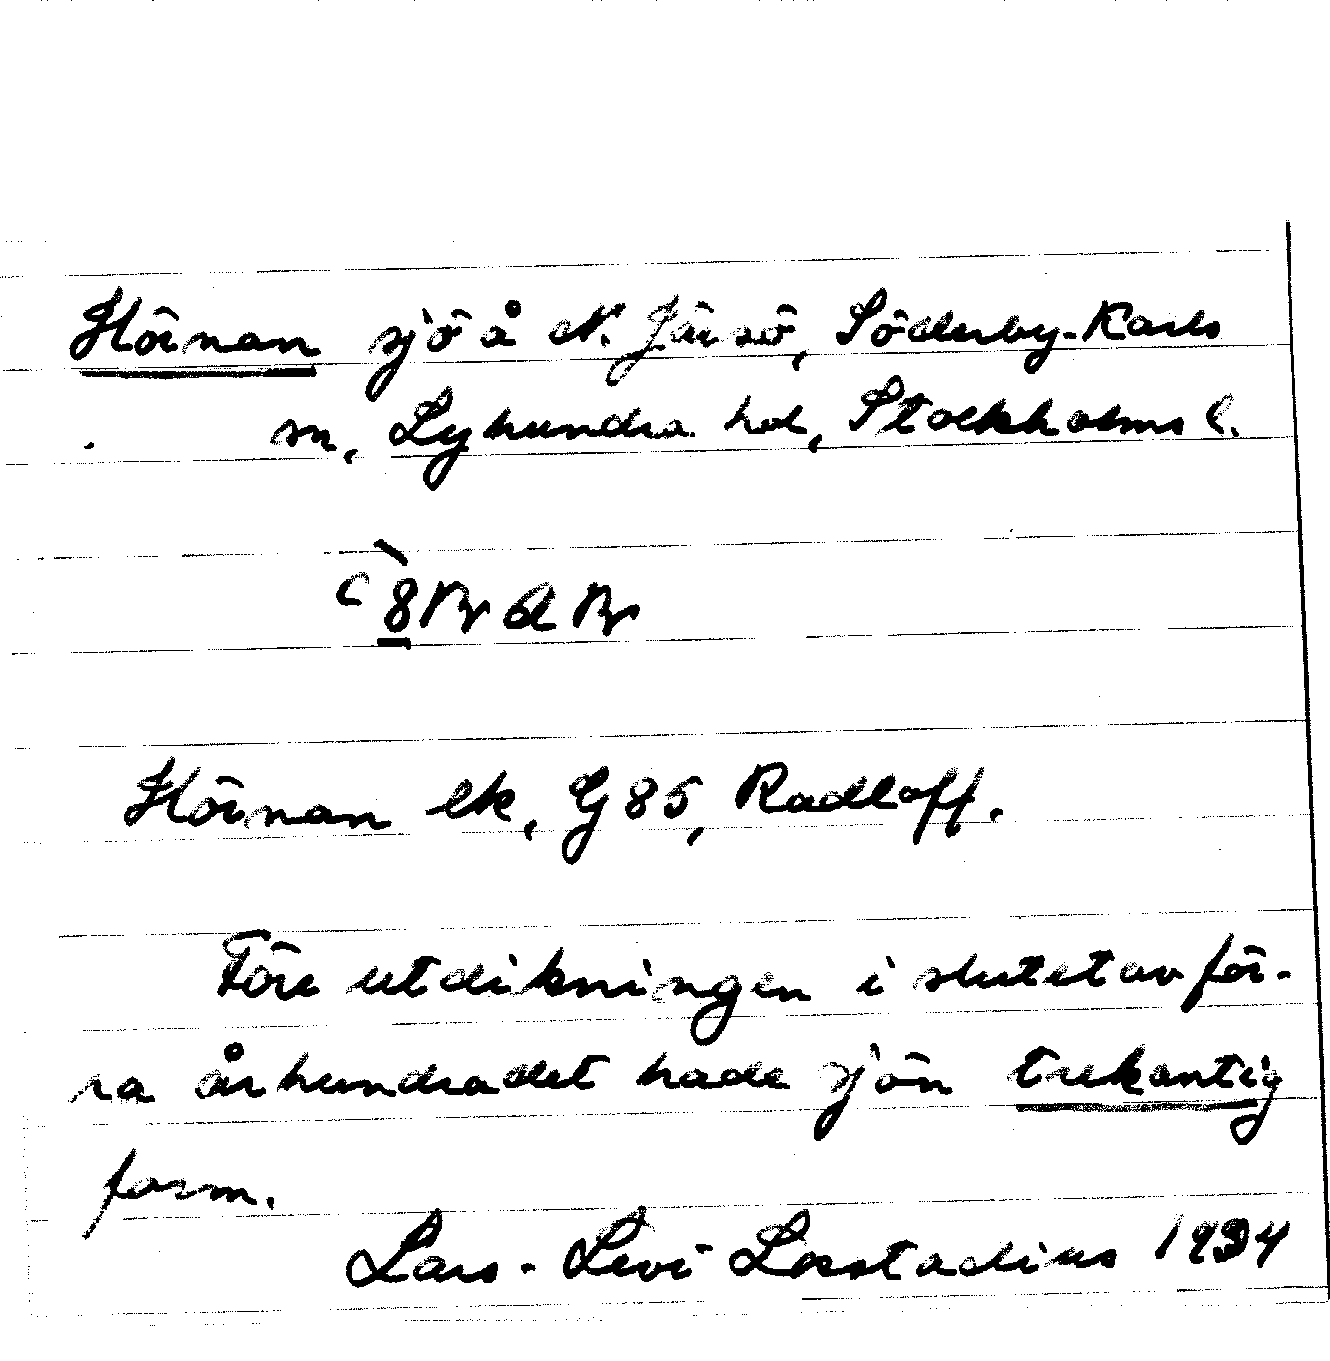 Hörnan sjö å N. Järsö, Söderby-Karls
sn, Lyhundra hd, Stockholms l.
Hörnan ek. G 85, Radloff.
Före utdikningen i slutet av för-
ra århundradet hade sjön trekantig
form.
Lars-Levi Læstadius 1934